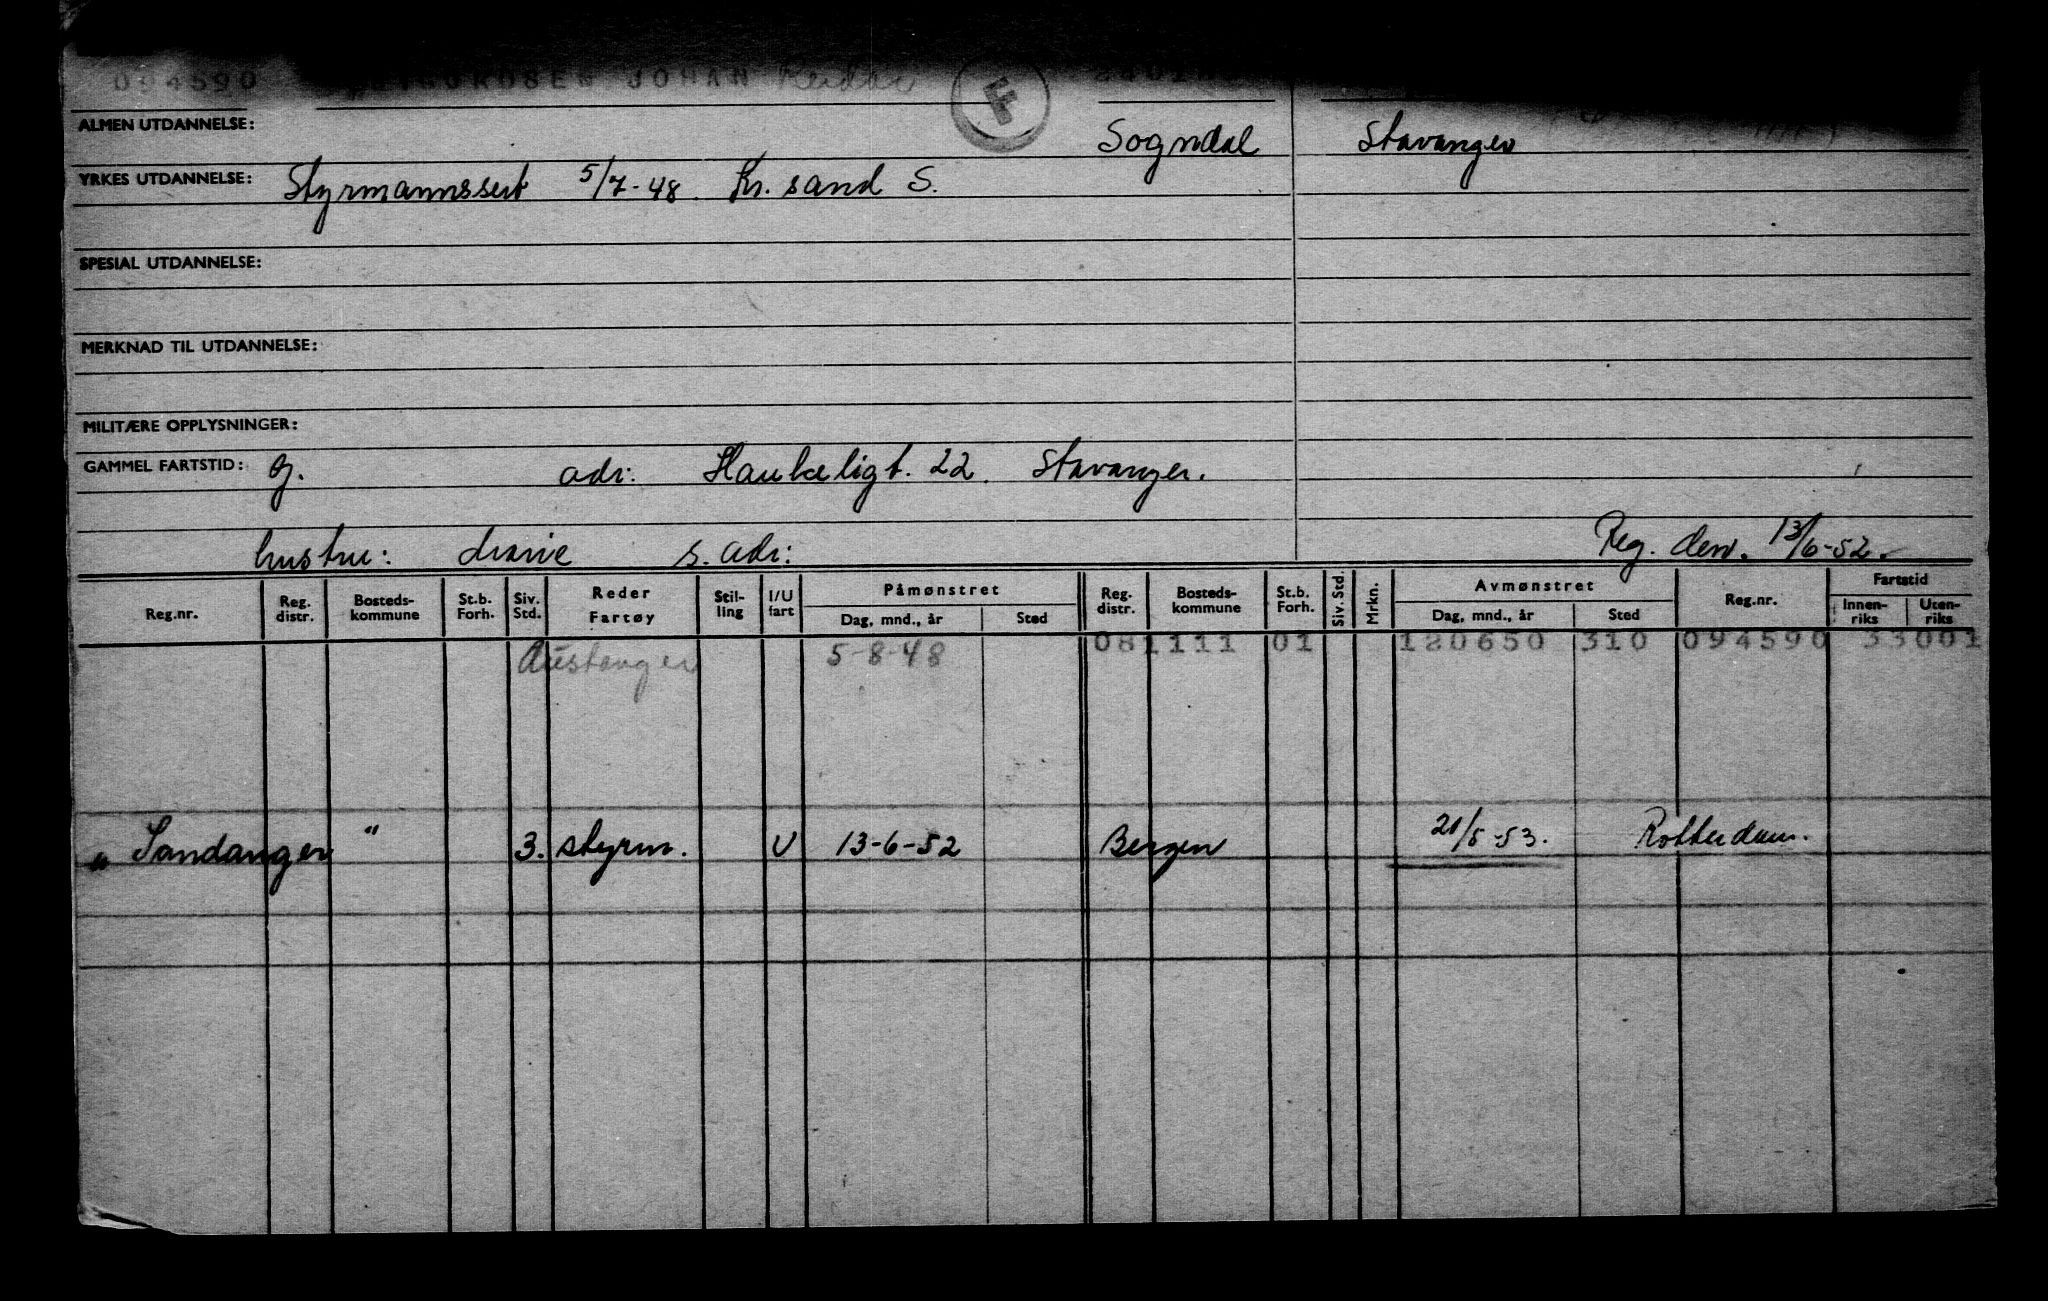 094590 JOHAN Reidar
ALMEN UTDANNELSE: Sogndal Stavanger
YRKES UTDANNELSE: Styrmannssert 5/7-48. Kr. sand S.
SPESIAL UTDANNELSE:
MERKNAD TIL UTDANNELSE:
MILITÆRE OPPLYSNINGER:
GAMMEL FARTSTID: g. adr: Haukeligt. 22. Stavanger.
hustru: Marie s. adr: Reg. den. 13/6-52.
Reg.nr. Reg. distr. Bosteds-kommune St.b. Forh. Siv. Std. Reder Fartøy Stil-ling I/U fart Påmønstret Dag, mnd., år Sted Reg. distr. Bosteds-kommune St.b. Forh. Siv. Std. Mrkn. Avmønstret Dag, mnd., år Sted Reg.nr. Fartstid Innen-riks Uten-riks
Austanger 5-8-48 081111 01 120650 310 094590 33001
" Sandanger " 3. styrm. U 13-6-52 Bergen 21/5-53. Rotterdam.